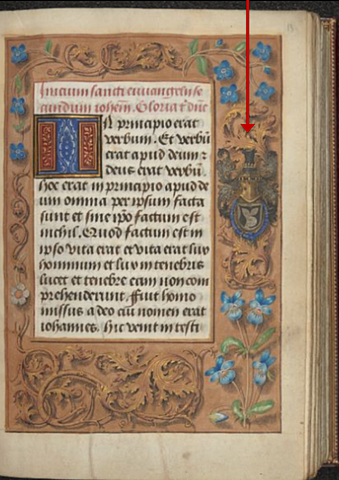 Inicium sancti euuangelii se
cundum iohēm. Gloria t̄ dn̄e
IN principio erat
verbum. Et verbū
erat apud deum ⁊
deus erat verbū.
hoc erat in principio apud de
um omnia per ipsum facta
sunt et sine ip̄o factum est
nichil. Quod factum est in
ip̄so vita erat et vita erat lux
hominum et lux in tenebris
lucet et tenebre eam non com
prehenderunt. Fuit homo
missus a deo cui nomen erat
iohannes. hic venit in testi